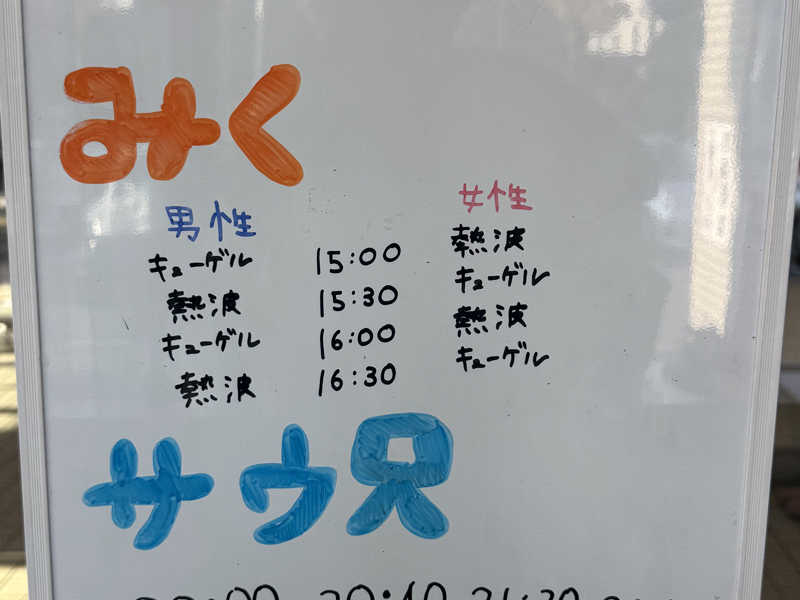 みく
男性 女性
キューゲル 15:00 熱波
熱波 15:30 キューゲル
キューゲル 16:00 熱波
熱波 16:30 キューゲル
サウ兄